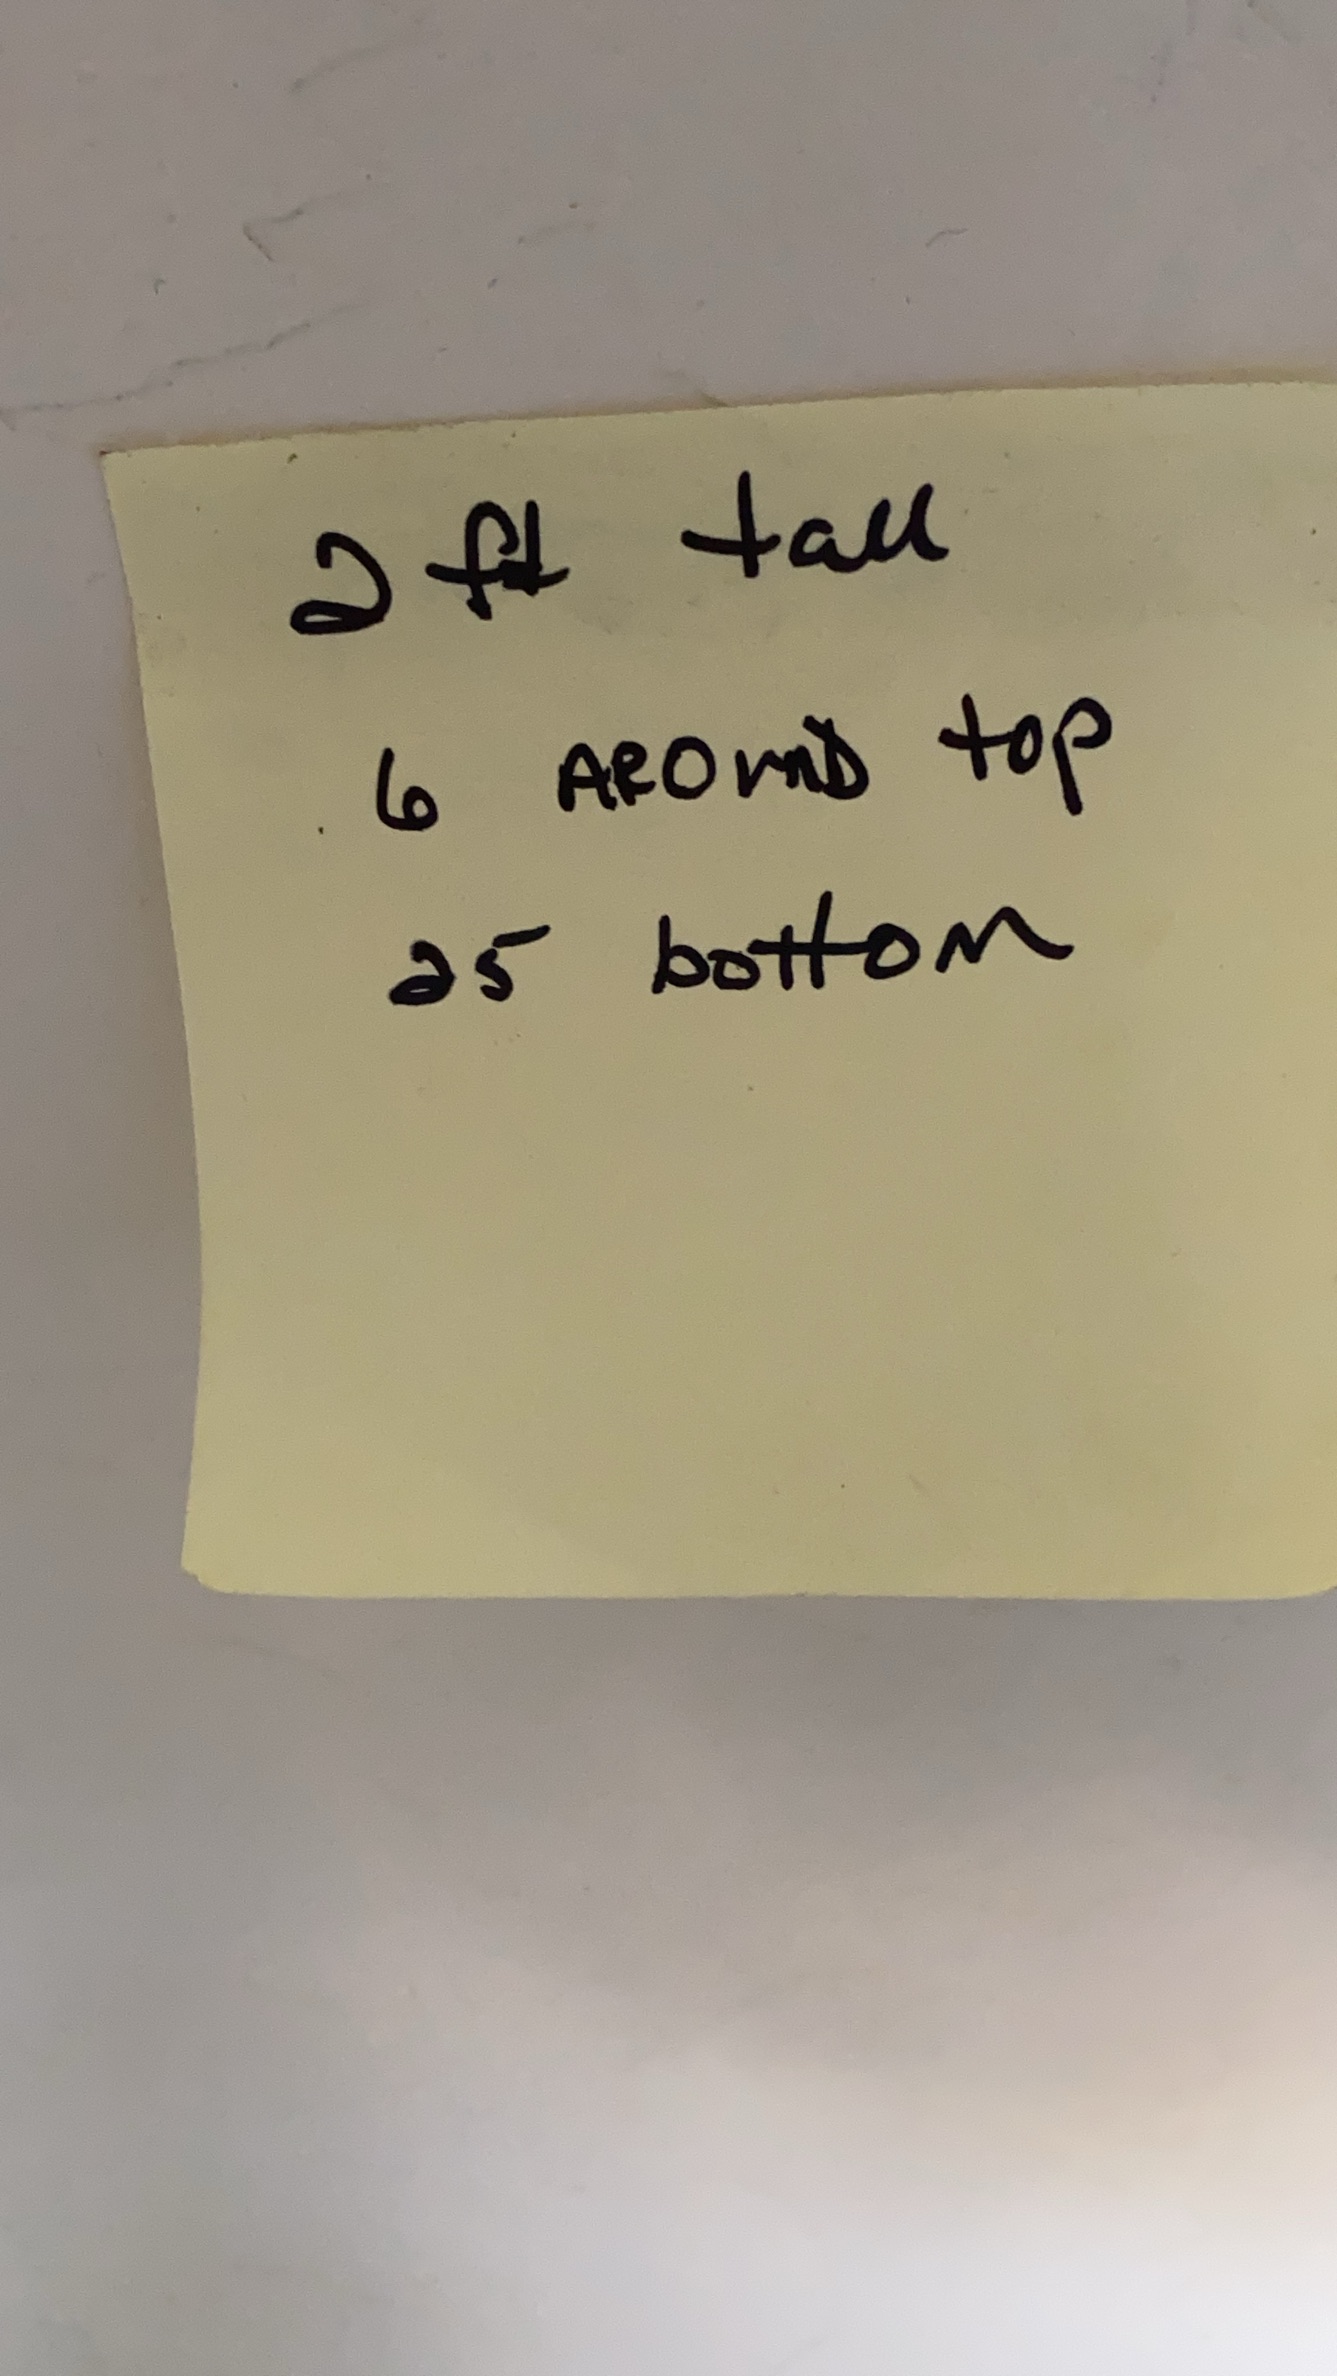 2 ft tall
6 AROUND top
25 bottom